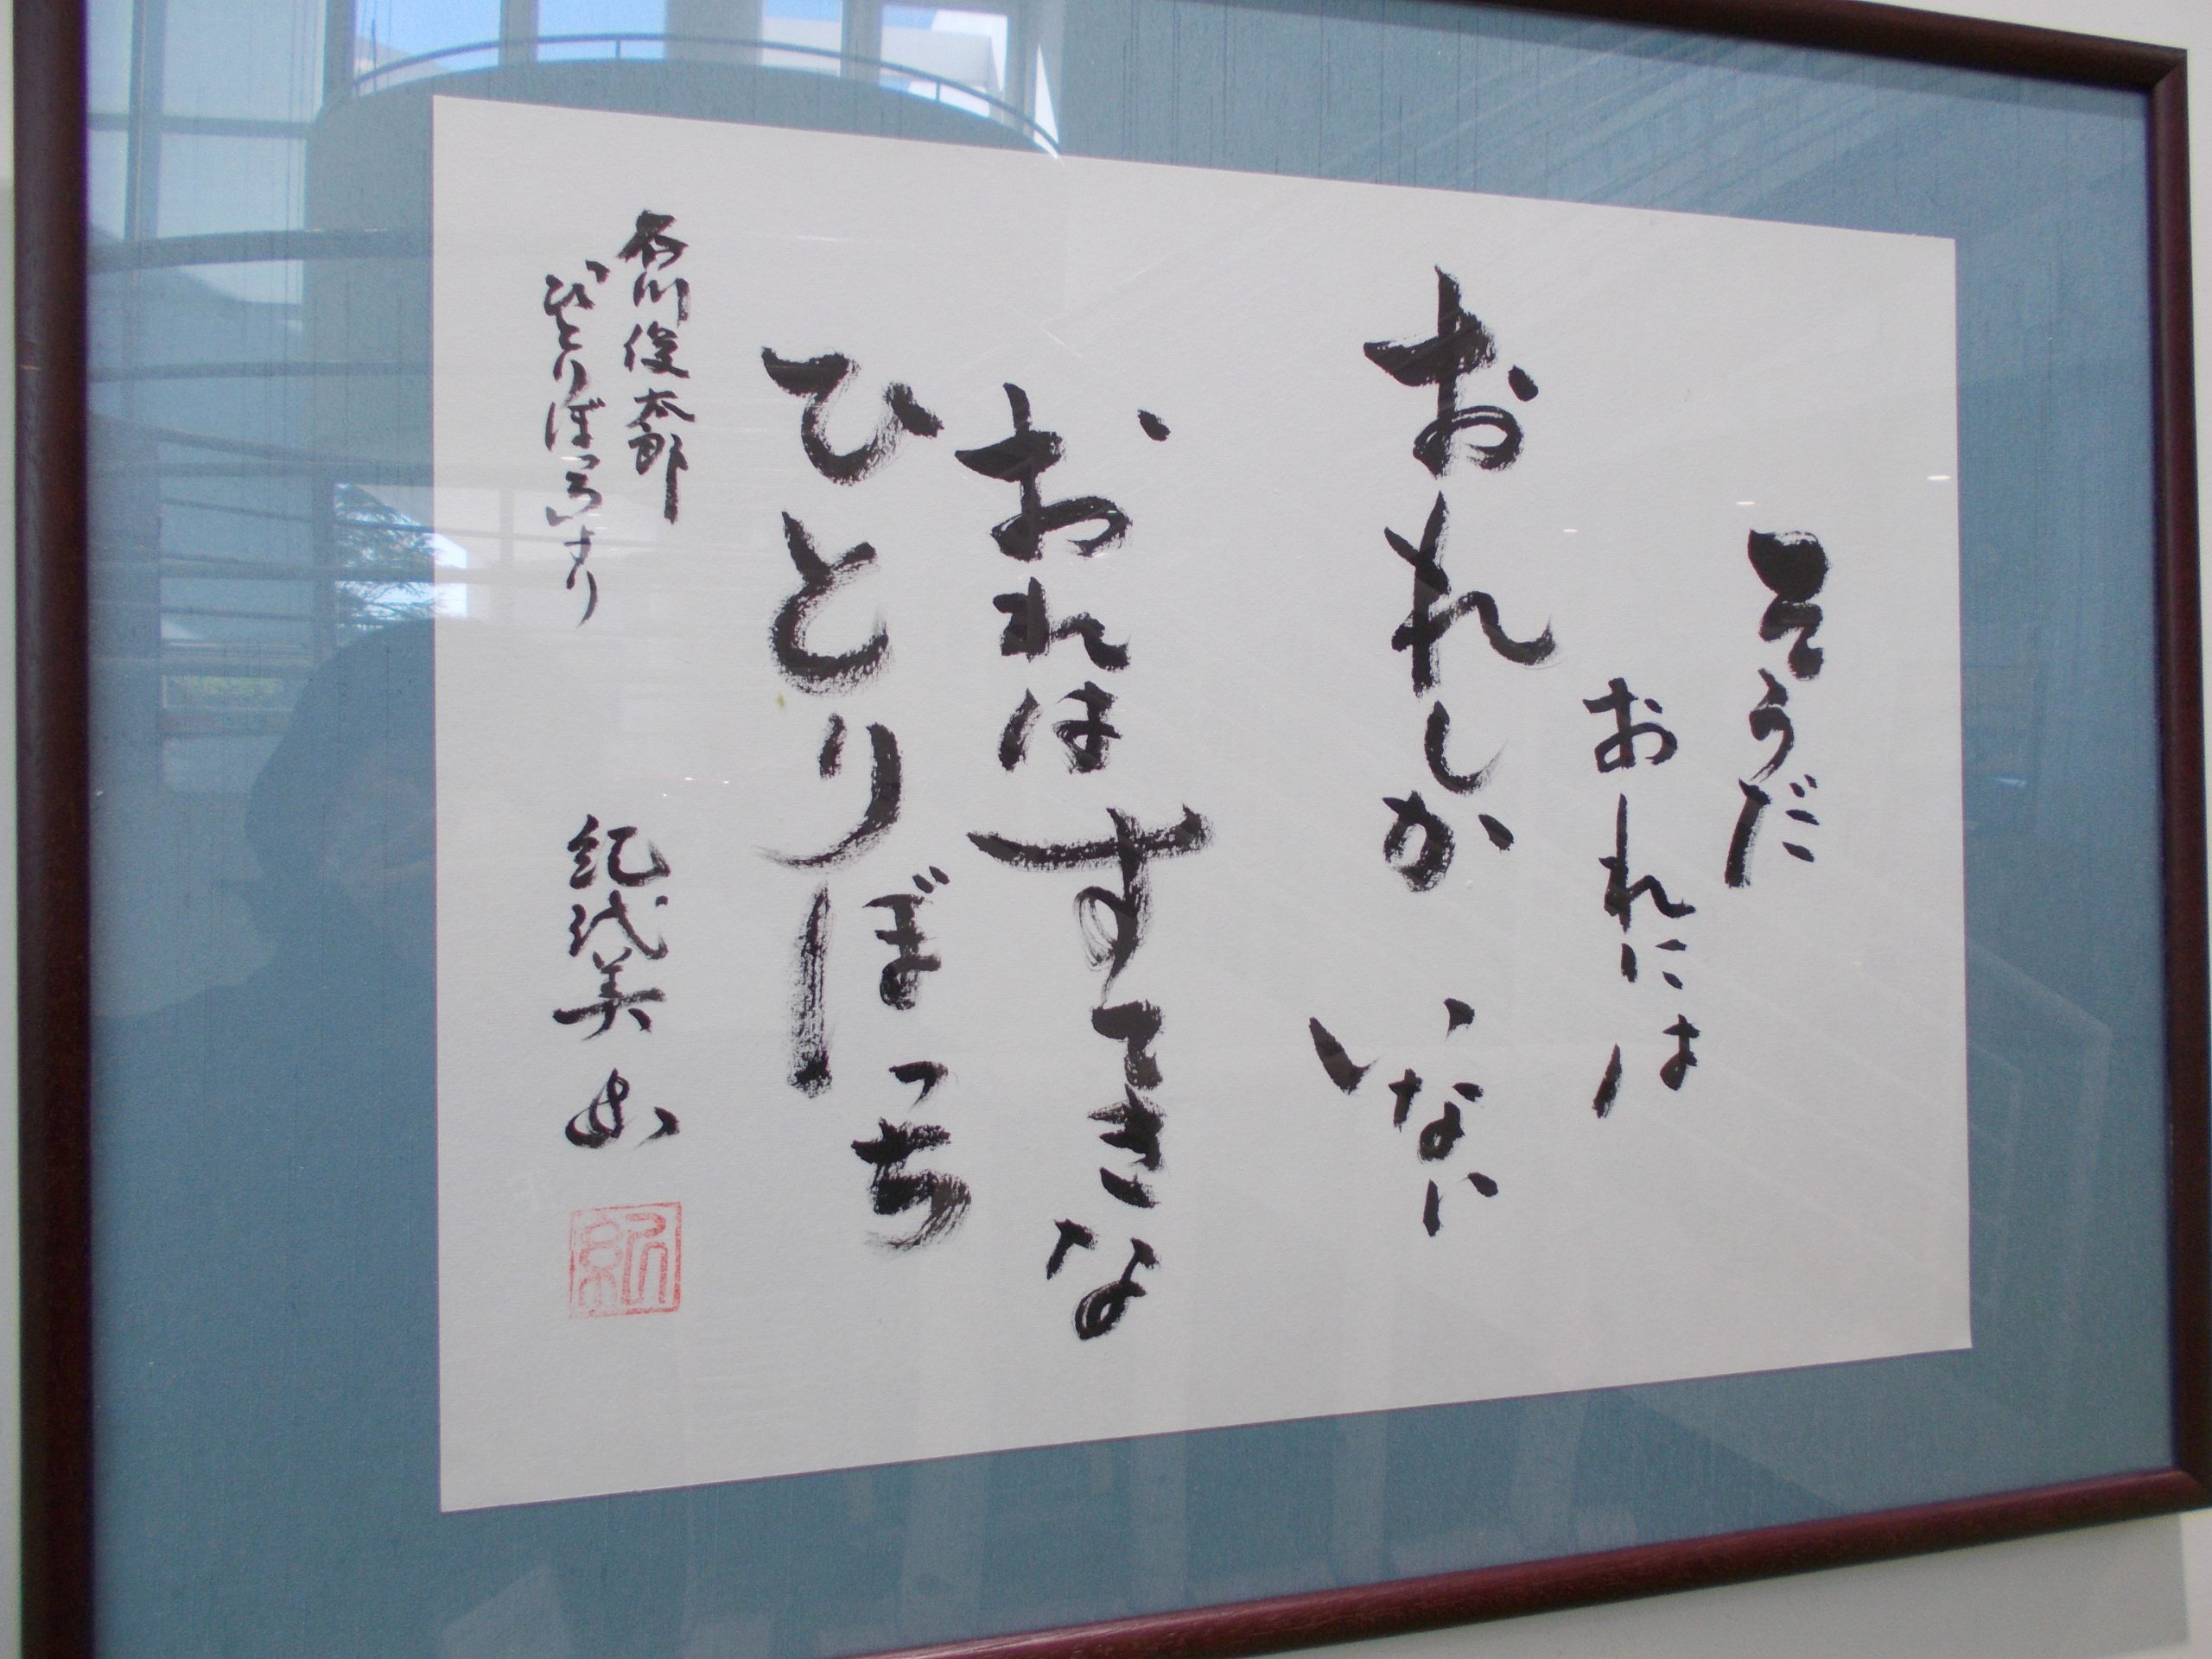 そうだ
おれには
おれしか いない
おれはすてきな
ひとりぼっち
谷川俊太郎
ひとりぼっちより
紀代美 書